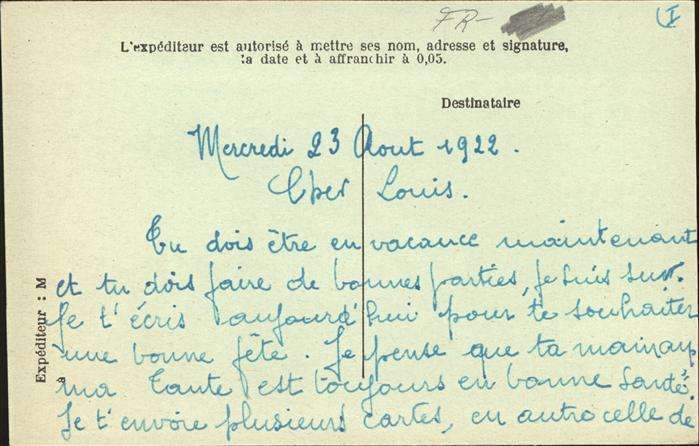 FR-
I
L'expéditeur est autorisé à mettre ses nom, adresse et signature,
la date et à affranchir à 0,05.
Destinataire
Mercredi 23 Aout 1922.
Cher Louis.
Tu dois être en vacance maintenant
et tu dois faire de bonnes parties, je suis sur.
Je t'écris aujourd'hui pour te souhaiter
une bonne fête. Je pense que ta maman
ma Tante est toujours en bonne santé.
Je t'envoie plusieurs cartes, en autro celle de
Expéditeur : M